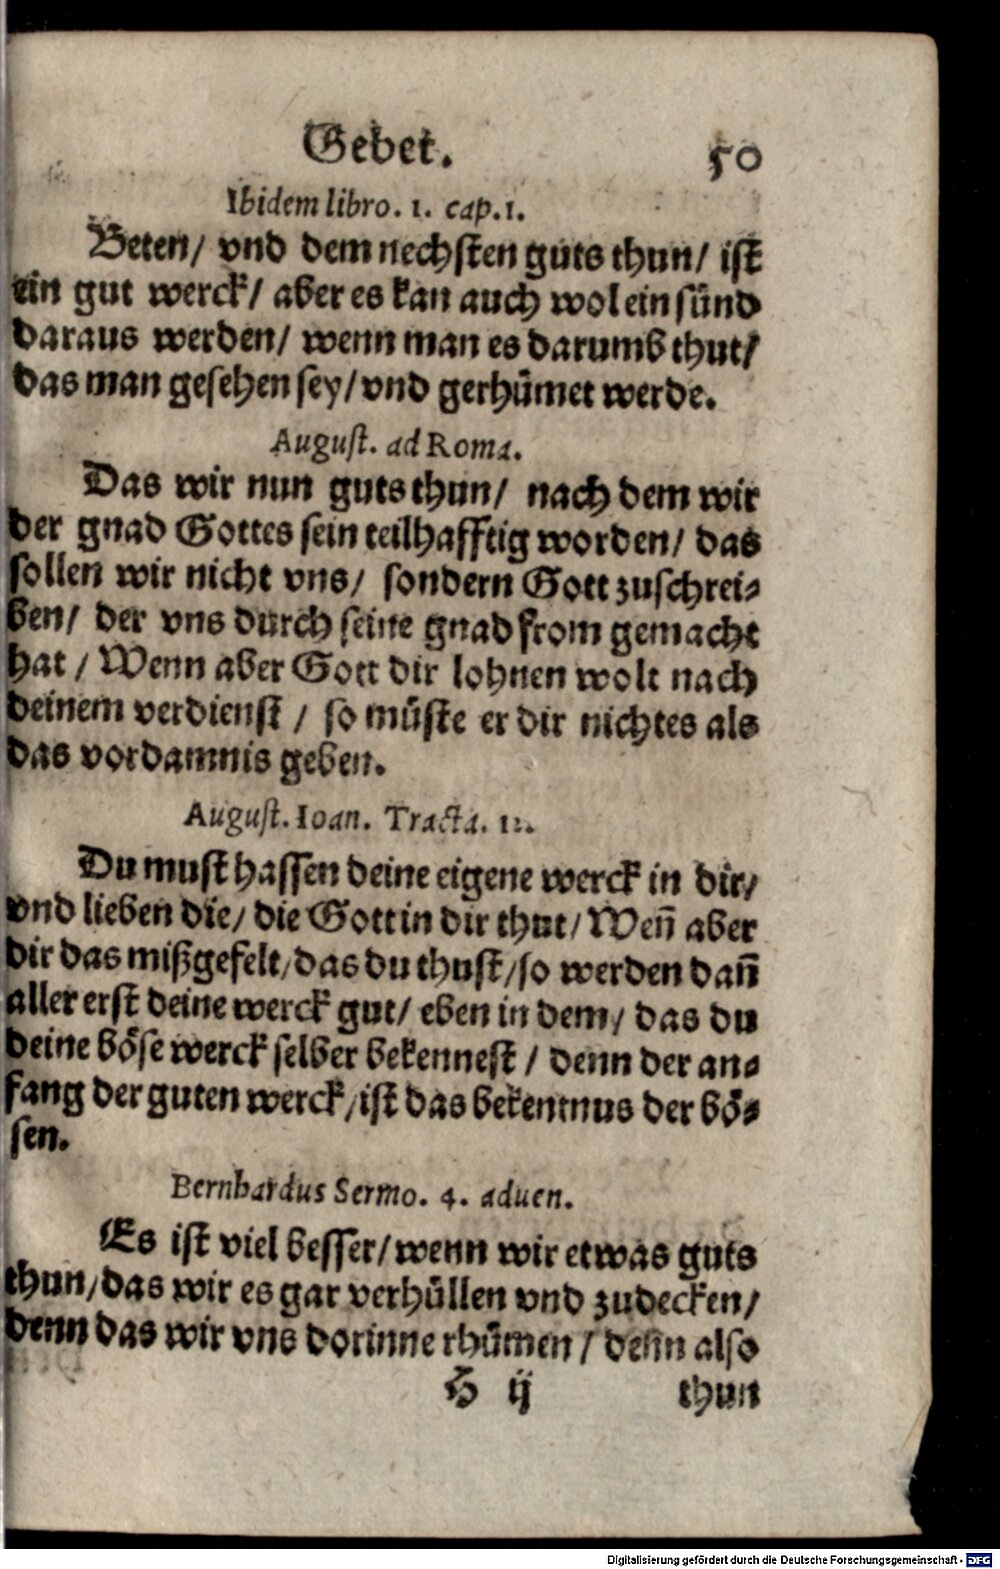 Gebet. 50
Ibidem libro. 1. cap. 1.
Beten/ vnd dem nechsten guts thun/ ist
ein gut werck/ aber es kan auch wol ein sünd
daraus werden/ wenn man es darumb thut/
das man gesehen sey/ vnd gerhümet werde.
August. ad Roma.
Das wir nun guts thun/ nach dem wir
der gnad Gottes sein teilhafftig worden/ das
sollen wir nicht vns/ sondern Gott zuschrei-
ben/ der vns durch seine gnad from gemacht
hat/ Wenn aber Gott dir lohnen wolt nach
deinem verdienst/ so müste er dir nichtes als
das vordamnis geben.
August. Ioan. Tracta.
Du must hassen deine eigene werck in dir/
vnd lieben die/ die Gott in dir thut/ Weñ aber
dir das mißgefelt/ das du thust/ so werden dañ
aller erst deine werck gut/ eben in dem/ das du
deine böse werck selber bekennest/ denn der an-
fang der guten werck/ ist das bekentnus der bö-
sen.
Bernhardus Sermo. 4. aduen.
Es ist viel besser/ wenn wir etwas guts
thun/ das wir es gar verhüllen vnd zudecken/
denn das wir vns dorinne rhümen/ denn also
H ij thun
Digitalisierung gefördert durch die Deutsche Forschungsgemeinschaft - DFG